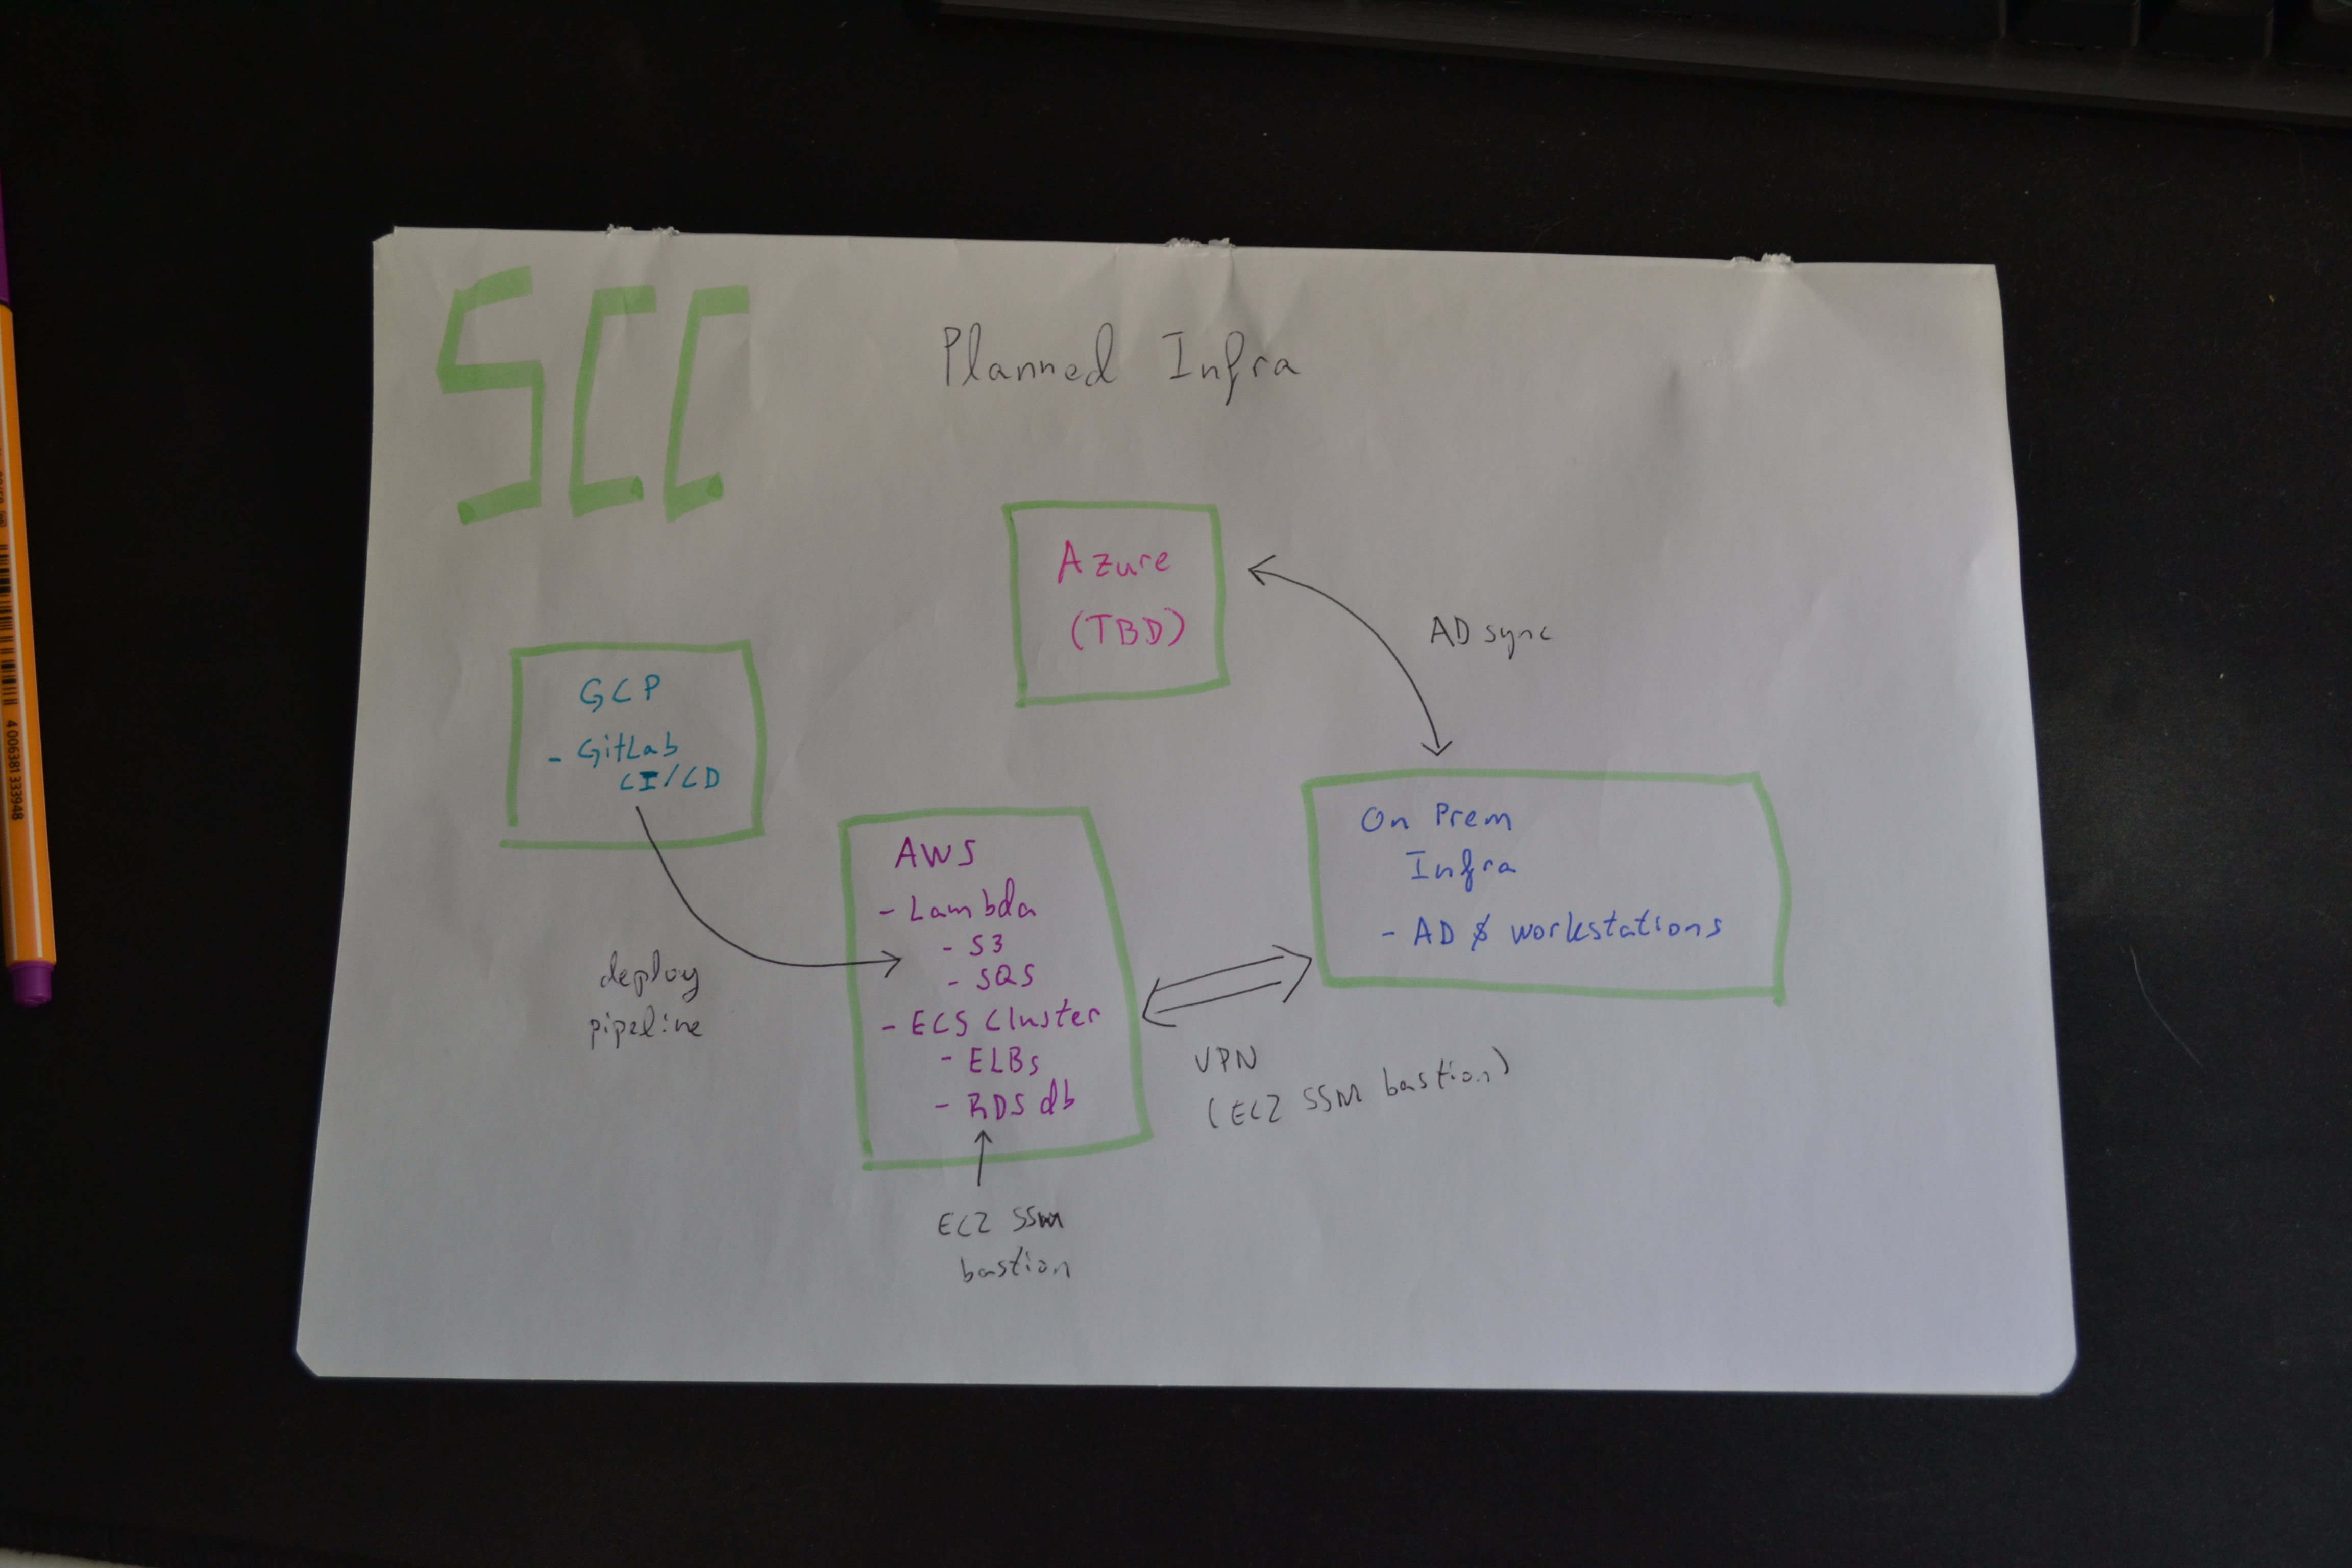 SCC
Planned Infra
Azure
(TBD)
AD sync
GCP
- GitLab
CI/CD
deploy
pipeline
AWS
- Lambda
- S3
- SQS
- ECS Cluster
- ELBs
- RDS db
On Prem
Infra
- AD & workstations
VPN
(EC2 SSM bastion)
EC2 SSM
bastion
4 006381 333948